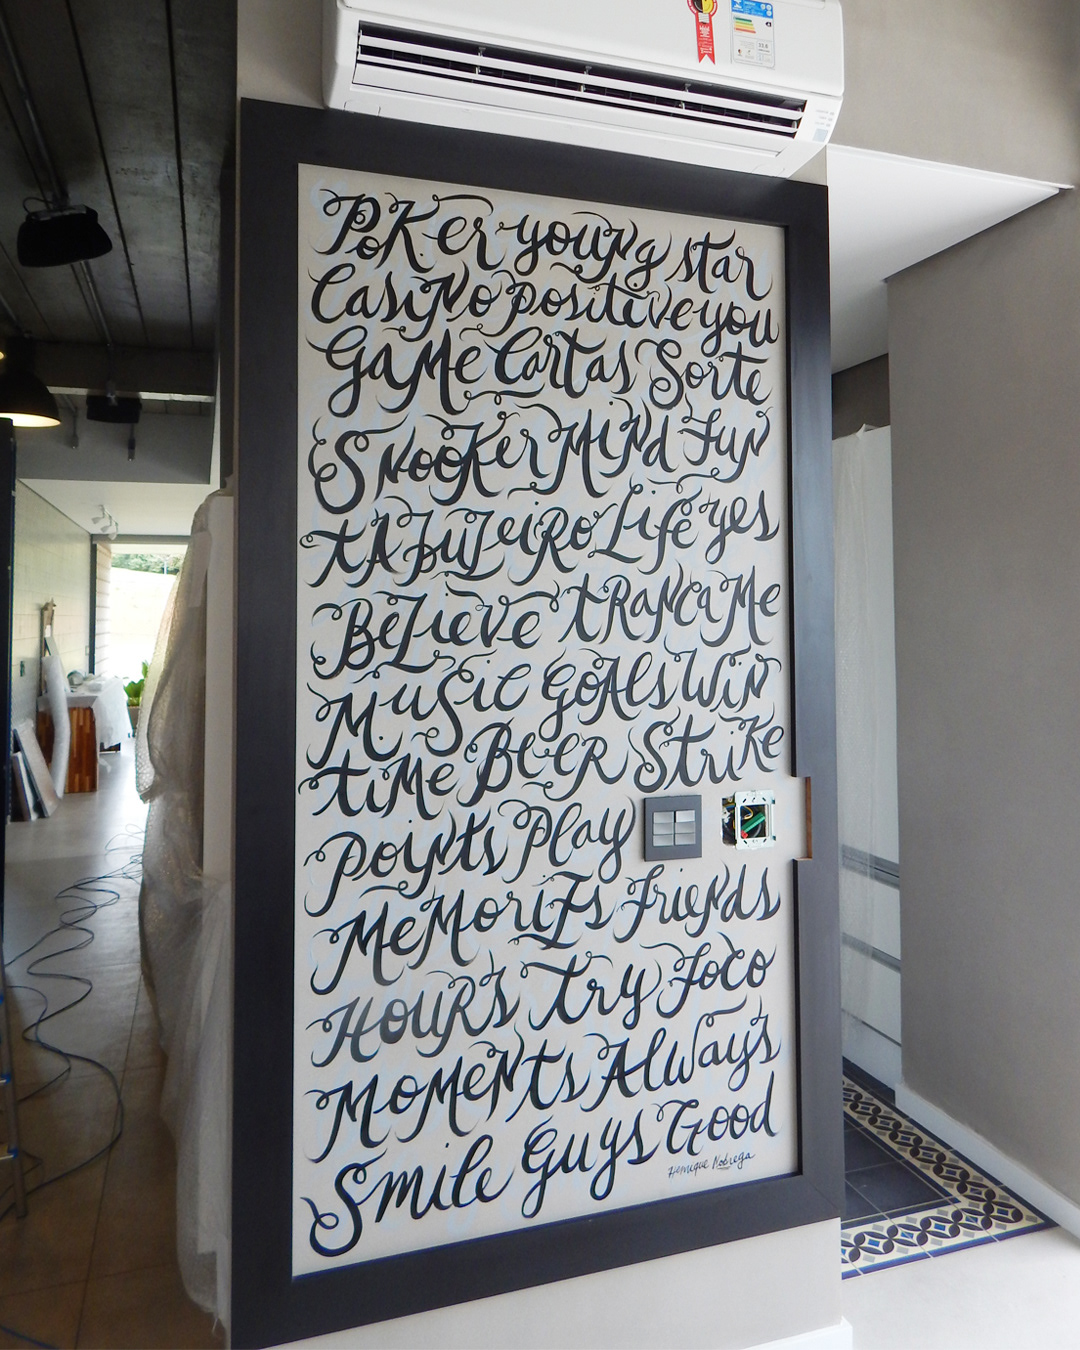 Poker young star
Casino positive you
Game Cartas Sorte
Snooker Mind Fun
tabuleiro Life yes
Believe tranca Me
Music Goals Win
time Beer Strike
Points Play
Memories Friends
Hours Try Foco
Moments Always
Smile Guys Good
Henrique Nobrega